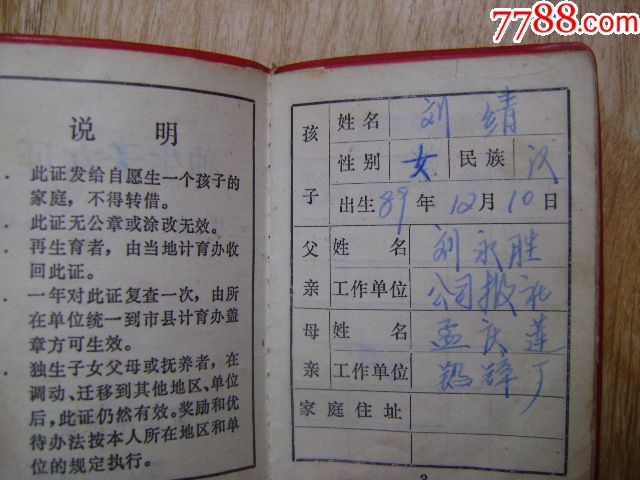 7788.com
说 明
此证发给自愿生一个孩子的
家庭，不得转借。
此证无公章或涂改无效。
再生育者，由当地计育办收
回此证。
一年对此证复查一次，由所
在单位统一到市县计育办盖
章方可生效。
独生子女父母或抚养者，在
调动、迁移到其他地区、单位
后，此证仍然有效。奖励和优
待办法按本人所在地区和单
位的规定执行。
孩子 姓名 刘 靖
性别 女 民族 汉
出生 89 年 12 月 10 日
父亲 姓 名 刘永胜
工作单位 公司报社
母亲 姓 名 孟庆莲
工作单位
家庭住址